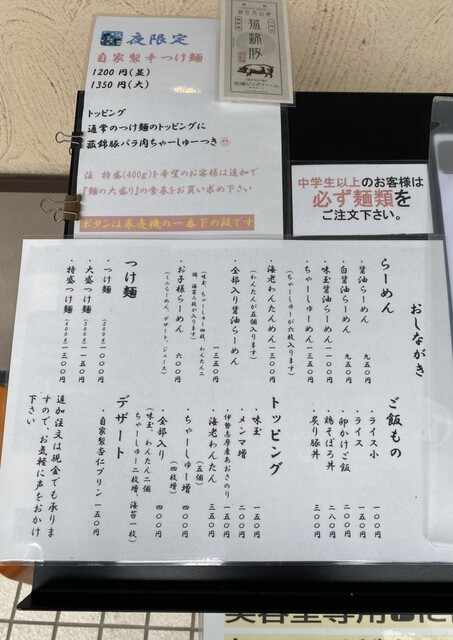 夜限定
自家製辛つけ麺
1200円(並)
1350円(大)
トッピング
通常のつけ麺のトッピングに
菰錦豚バラ肉ちゃーしゅーつき
注 特盛(400g)を希望のお客様は追加で
『麺の大盛り』の食券をお買い求め下さい
ボタンは券売機の一番下の段です
菰錦豚
中学生以上のお客様は
必ず麺類を
ご注文下さい。
おしながき
らーめん
・醤油らーめん 九五〇円
・白醤油らーめん 九五〇円
・味玉醤油らーめん 一一〇〇円
・ちゃーしゅーめん 一三五〇円
(ちゃーしゅーが六枚入ります)
・海老わんたんめん 一三〇〇円
(わんたんが五個入ります)
・全部入り醤油らーめん
一三五〇円
(味玉、ちゃーしゅー四枚、わんたん二
個、海苔二枚が入ります)
・お子様らーめん 六〇〇円
(ミニらーめん、デザート、ジュース)
つけ麺
・つけ麺 (200g) 一〇〇〇円
・大盛つけ麺 (300g) 一一五〇円
・特盛つけ麺 (400g) 一三〇〇円
ご飯もの
・ライス小 一〇〇円
・ライス 一五〇円
・卵かけご飯 二〇〇円
・鶏そぼろ丼 二八〇円
・炙り豚丼 三〇〇円
トッピング
・味玉 一五〇円
・メンマ増 二〇〇円
・伊勢志摩産あおさのり 一五〇円
・海老わんたん 三五〇円
(五個)
・ちゃーしゅー増 四〇〇円
(四枚増)
・全部入り 四〇〇円
(味玉、わんたん二個
ちゃーしゅー二枚増、海苔一枚)
デザート
・自家製杏仁プリン 一五〇円
追加注文は現金でも承りま
すので、お気軽に声をおかけ
下さい
美容室専用